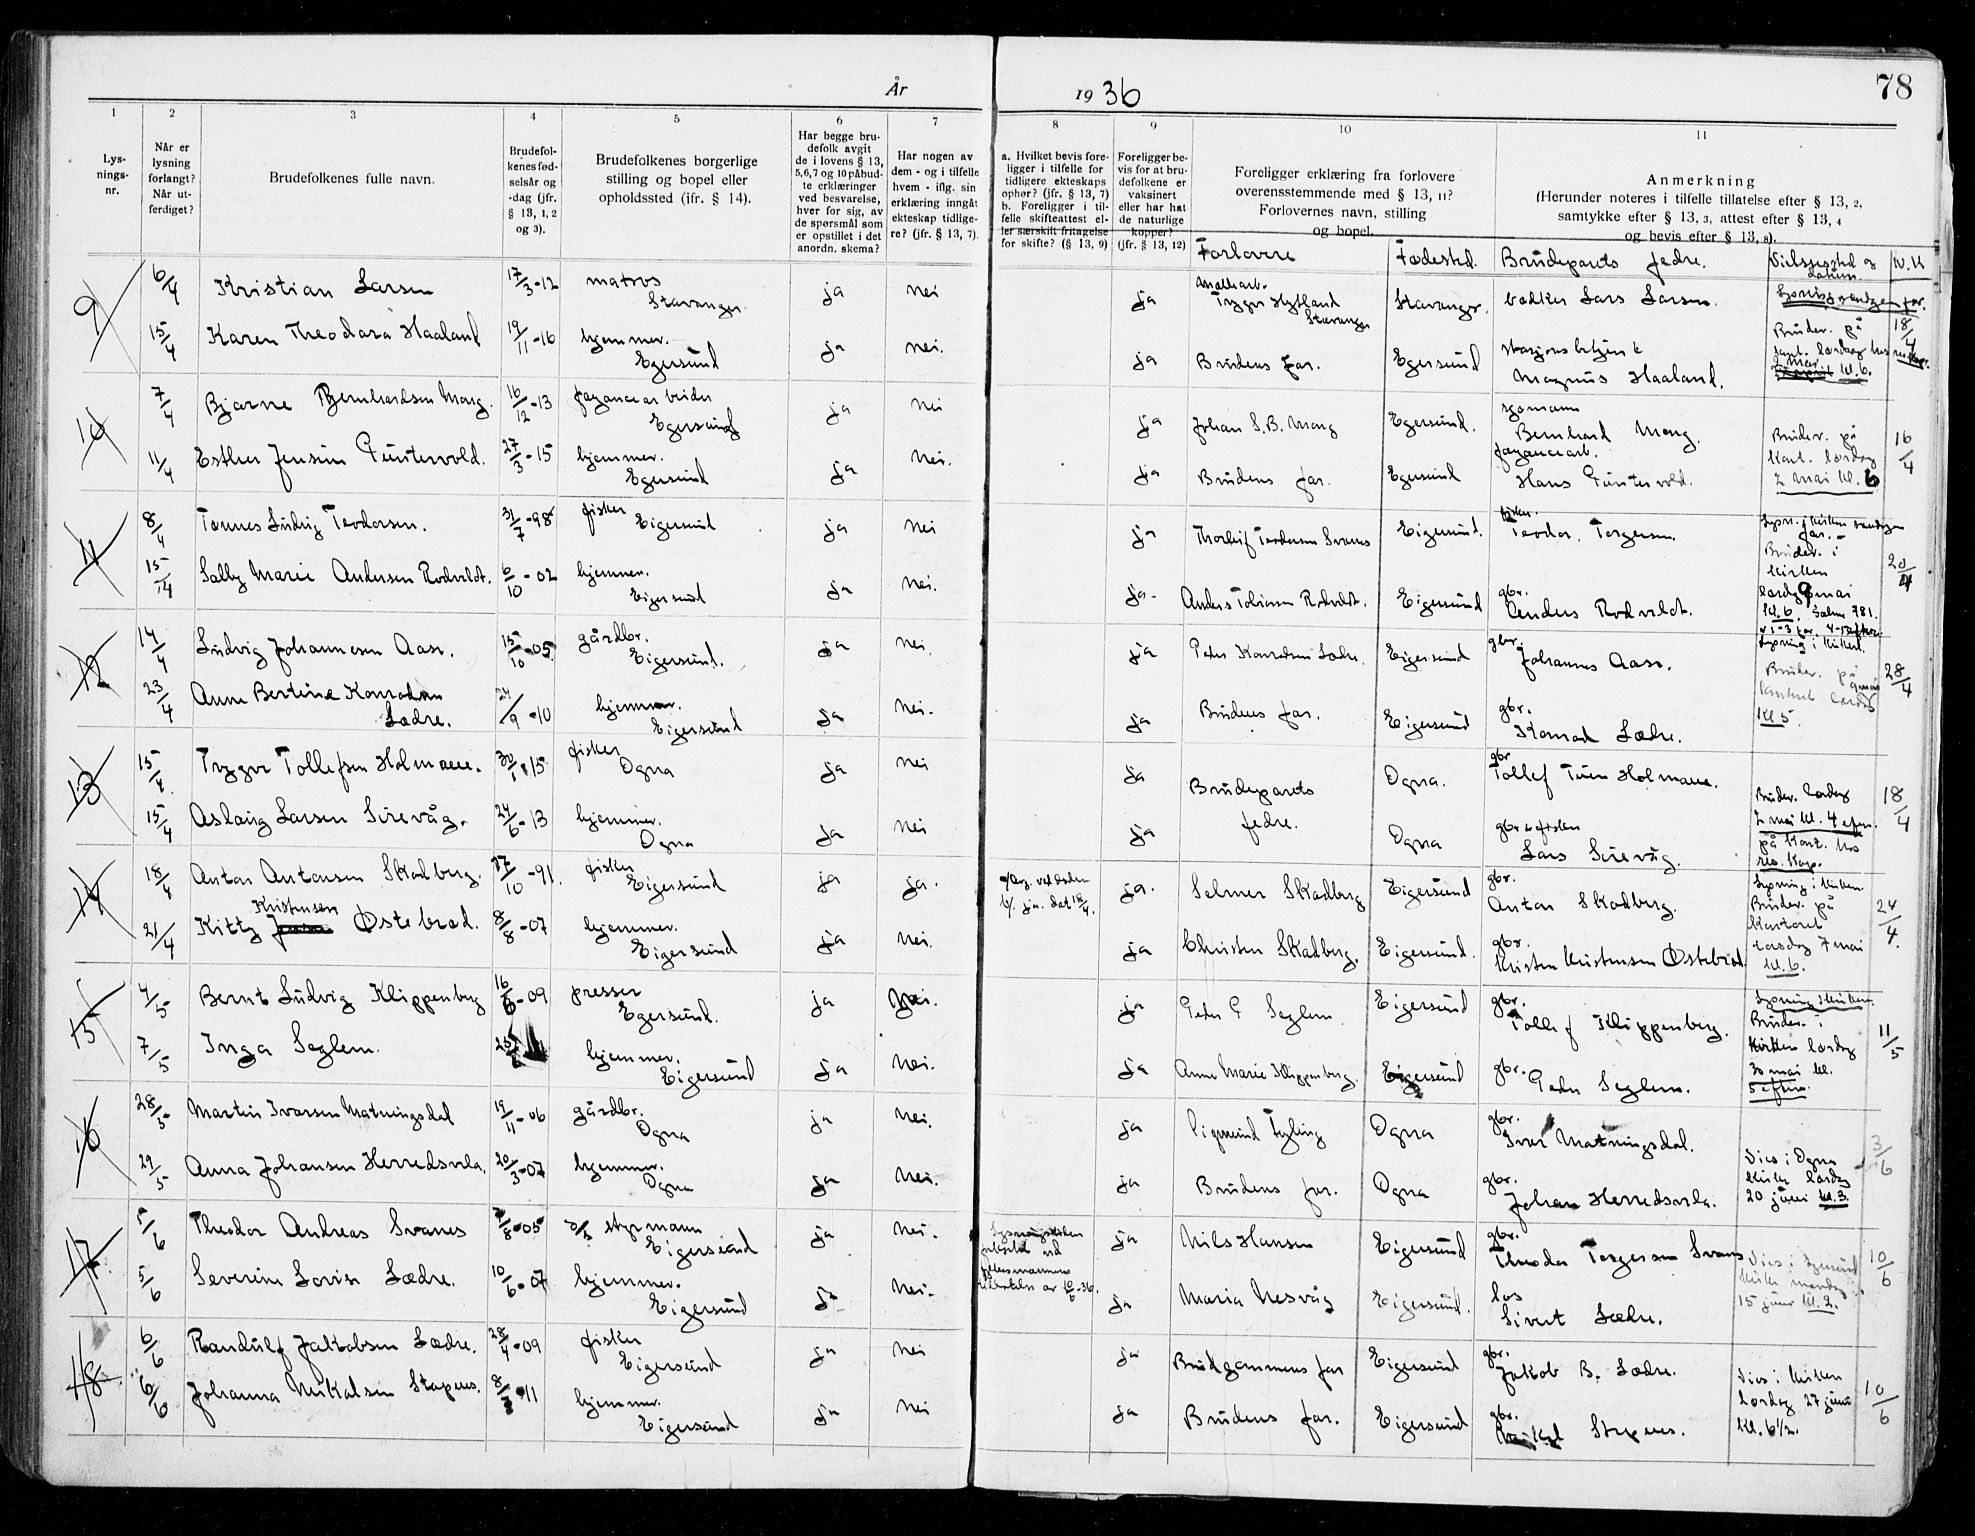 År 1936
78
1 2 3 4 5 6 7 8 9 10 11
Lys-
nings-
nr.
Når er
lysning
forlangt?
Når ut-
ferdiget?
Brudefolkenes fulle navn.
Brudefol-
kenes fød-
selsår og
-dag (jfr.
§ 13, 1, 2
og 3).
Brudefolkenes borgerlige
stilling og bopel eller
opholdssted (jfr. § 14).
Har begge bru-
defolk avgit
de i lovens § 13,
5,6,7 og 10 påbud-
te erklæringer
ved besvarelse,
hver for sig, av
de spørsmål som
er opstillet i det
anordn. skema?
Har nogen av
dem - og i tilfelle
hvem - iflg. sin
erklæring inngåt
ekteskap tidlige-
re? (jfr. § 13, 7).
a. Hvilket bevis fore-
ligger i tilfelle for
tidligere ekteskaps
ophør? (jfr. § 13, 7)
b. Foreligger i til-
felle skifteattest el-
ler særskilt fritagelse
for skifte? (§ 13, 9)
Foreligger be-
vis for at bru-
defolkene er
vaksinert
eller har hat
de naturlige
kopper?
(jfr. § 13, 12)
Foreligger erklæring fra forlovere
overensstemmende med § 13, 11?
Forlovernes navn, stilling
og bopel.
Anmerkning
(Herunder noteres i tilfelle tillatelse efter § 13, 2,
samtykke efter § 13, 3, attest efter § 13, 4
og bevis efter § 13, 8).
Forlovere Fødested. Brudeparets fedre. Vielsessted og datum.
9 6/4 Kristian Larsen 17/3-12 matros Stavanger ja nei ja Trygve Hytland Stavanger Stavanger. bødker Lars Larsen.
15/4 Karen Theodora Haaland 19/11-16 hjemmev. Egersund ja nei. ja Brudens far. Egersund Magnus Haaland. Brudev. på 18/4
kl. 6.
10 7/4 Bjarne Bernhardsen Mong. 16/12-13 fayancearbeider Egersund ja nei ja Johan S.B. Mong Egersund. sjømann Bernhard Mong. 16/4
11/4 Esther Jensine Puntervold. 27/3-15 hjemmev. Egersund ja nei. ja Brudens far. Egersund fayancearb. Hans Puntervold. Brudev. på Kont. lørdag 2 mai kl. 6
11 8/4 Tønnes Ludvig Teodorsen. 31/7-98 fisker Eigersund ja nei ja Thorleif Teodorsen Svanes Eigersund. fisker. Teodor Torgersen.
15/4 Salby Marie Andersen Rodvelt. 6/10-02 hjemmev. Eigersund ja nei. ja- Anders Tobiassen Rodvelt. Eigersund gbr. Anders Rodvelt. Brudev. i kirken lørdag 9 mai kl. 6. Salme 781. 20/4
12 14/4 Ludvig Johannesen Aase. 15/10-05. gårdbr. Eigersund. ja nei. ja Peder Konradsen Lædre. Eigersund gbr. Johannes Aase. Lysning i kirken.
23/4 Anne Bertine Konradsen Lædre. 24/9-10 hjemmev. Eigersund ja nei. ja Brudens far. Eigersund gbr. Konrad Lædre. Brudev. på kl 5. 28/4
13 15/4 Trygve Tollefsen Holmane. 30/1-15. fisker Ogna ja nei ja Brudeparets Ogna. gbr Tollef Holmane.
15/4 Aslaug Larsen Sirevåg. 24/6-13 hjemmev. Ogna ja nei ja fedre. Ogna gbr. & fisker Lars Sirevåg. Brudev. lørdag 2 mai kl. 4 efm. på Kont. hos res. Kap. 18/4
14 18/4 Anton Antonsen Skadberg. 17/10-91. fisker Eigersund ja ja. ja. Selmer Skadberg Eigersund gbr. Anton Skadberg. Lysning i kirken. Brudev. på
21/4 Kitty Kristensen Østebrød. 8/8-07 hjemmev. Eigersund ja nei. ja Christen Skadberg. Eigersund. gbr. Kristen Kristensen Østebrød Kontoret torsdag 7 mai kl. 6. 24/4.
15 4/5 Bernt Ludvig Klippenberg 16/6-09 presser Egersund. ja nei. ja Peder P Seglem Eigersund gbr. Tollef Klippenberg. Lysning i kirken.
7/5 Inga Seglem. hjemmev. Eigersund ja nei. ja Anne Marie Klippenberg. Eigersund gbr. Peder Seglem. Brudev. i kirken lørdag 30 mai kl. 5 efm. 11/5
16 28/5 Martin Ivarsen Matningsdal 19/11-06 gårdbr. Ogna ja nei. ja Sigmund Tyling Ogna gbr. Ivar Matningsdal.
29/5 Anna Johansen Herredsvela. 20/3-07 hjemmev. Ogna ja nei. ja Brudens far. Ogna gbr. Johan Herredsvela. Vies i Ogna kirke lørdag 20 juni kl. 3. 3/6
17 5/6 Theodor Andreas Svanes 8-05 styrmann Eigersund ja nei. ja Nils Hansen Eigersund gbr. Theodor Torgersen Svanes
5/6 Severine Lovise Lædre. 10/6-07 hjemmev. Eigersund ja nei. ja Maria Nesvåg Eigersund. los Sivert Lædre. Vies i Egersund kirke mandag 15 juni kl. 2. 10/6
18 6/6 Randulf Jakobsen Lædre. 28/4-09 fisker Eigersund ja nei ja Brudgommens far Eigersund gbr. Jakob B. Lædre.
6/6 Johanna Mikalsen Stapnes. 8-11 hjemmev. Eigersund ja nei ja Brudens far. Eigersund gbr. Mikal Stapnes. Vies i kirken lørdag 27 juni kl. 6 1/2. 10/6